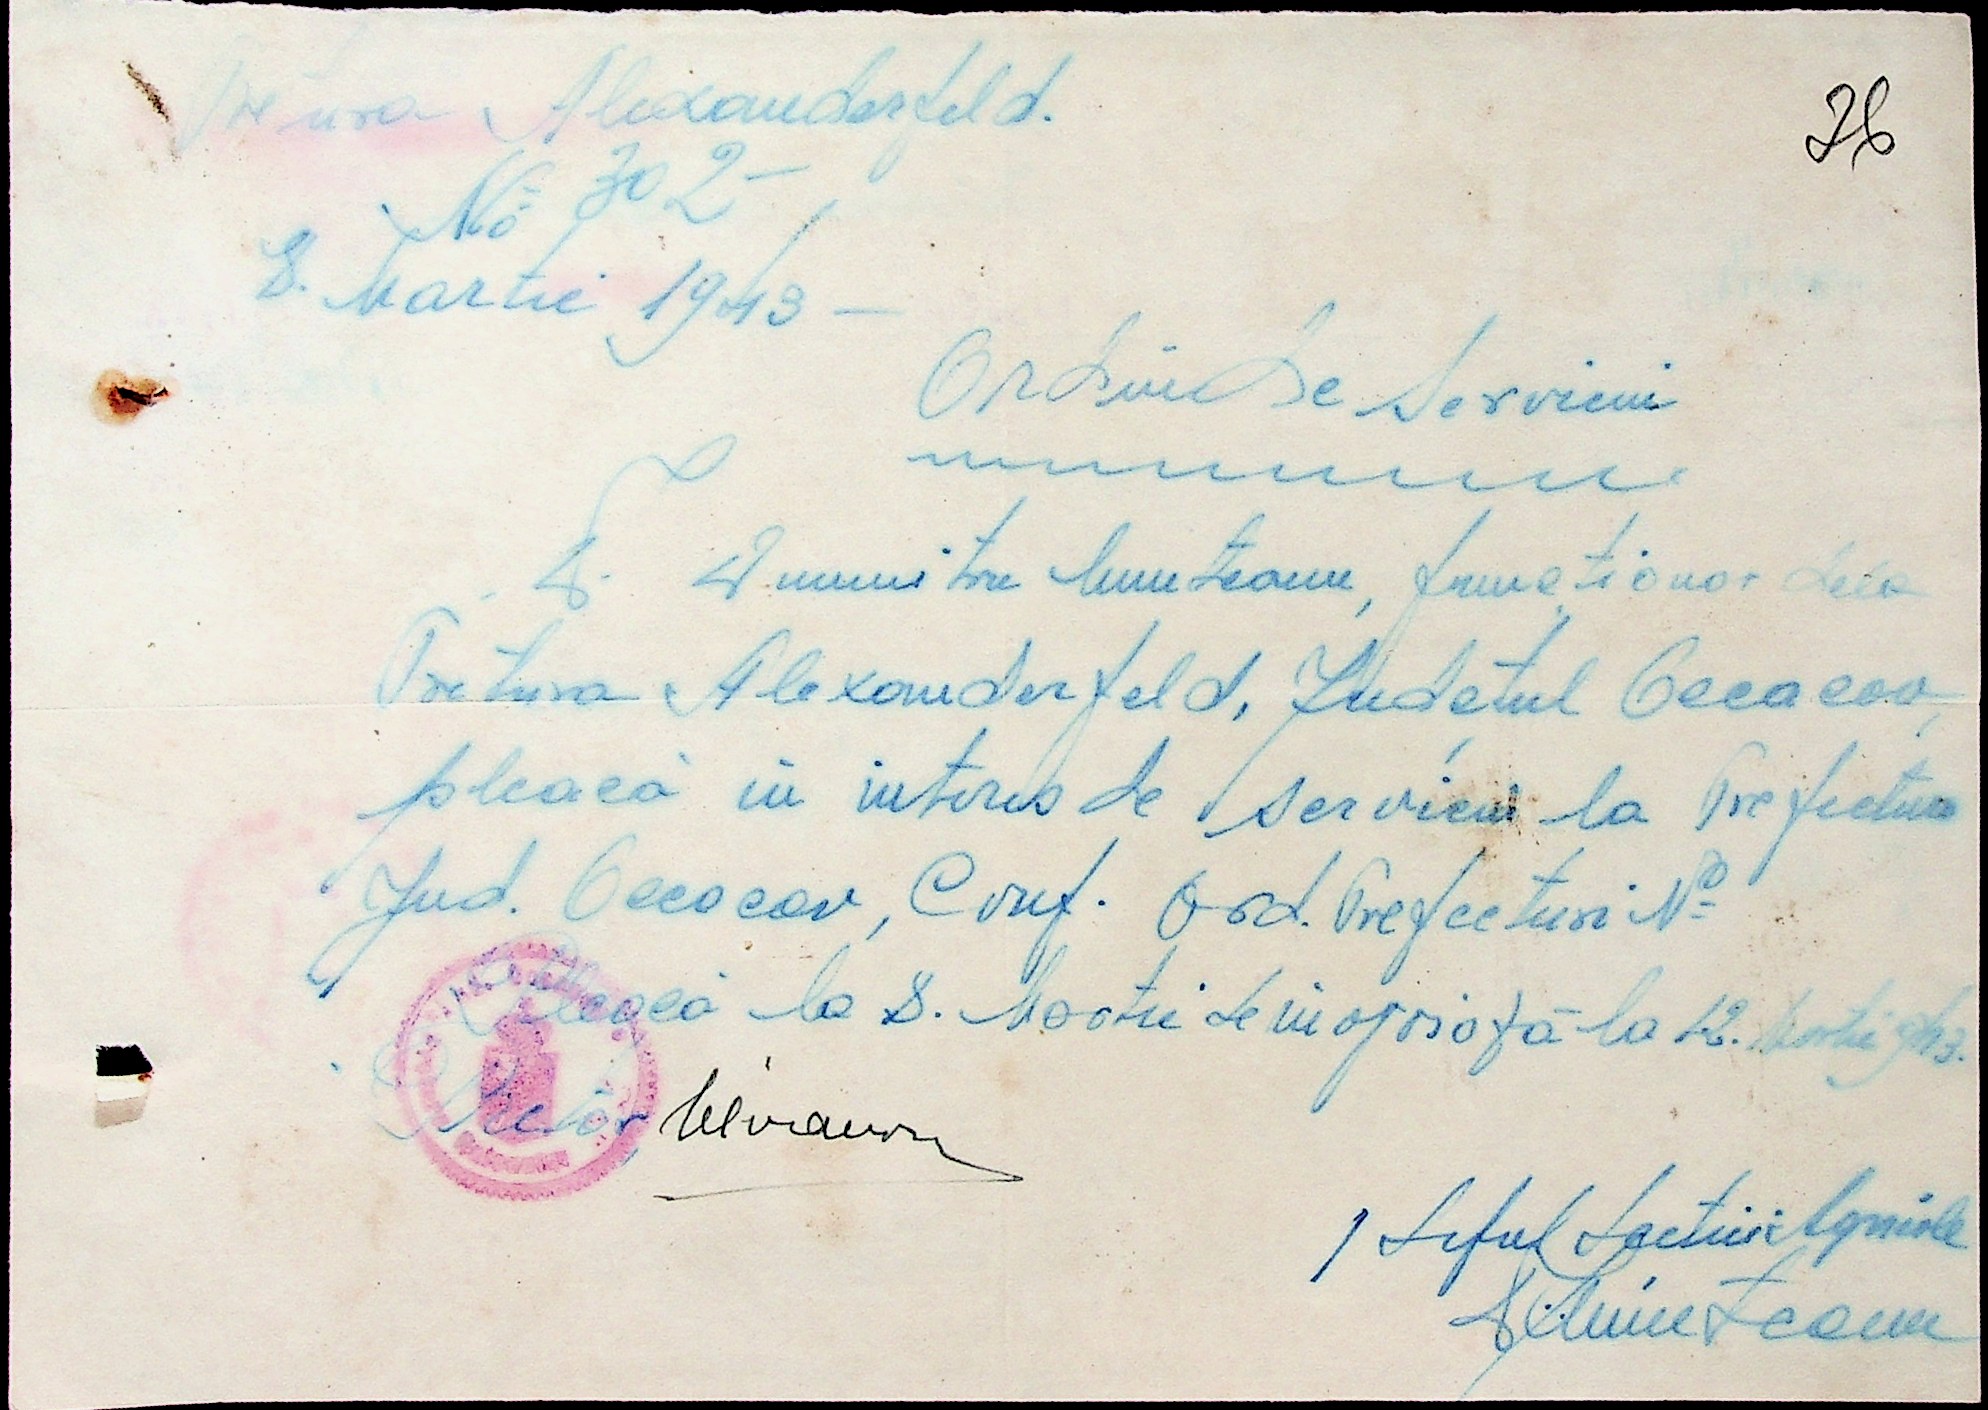 Pretura Alexanderfeld.
26
No 302 –
8. Martie 1943 –
Ordin de Serviciu
D. Dumitru Munteanu, funcționar dela
Pretura Alexanderfeld, Județul Oceacov,
pleacă în interes de serviciu la Prefectura
Jud. Oceacov, Conf. Ord. Prefecturi No
Pleacă la 8. Martie se înapoiază la 12. Martie 943.
Pretor
1 Șeful Secției Agricole
D Munteanu